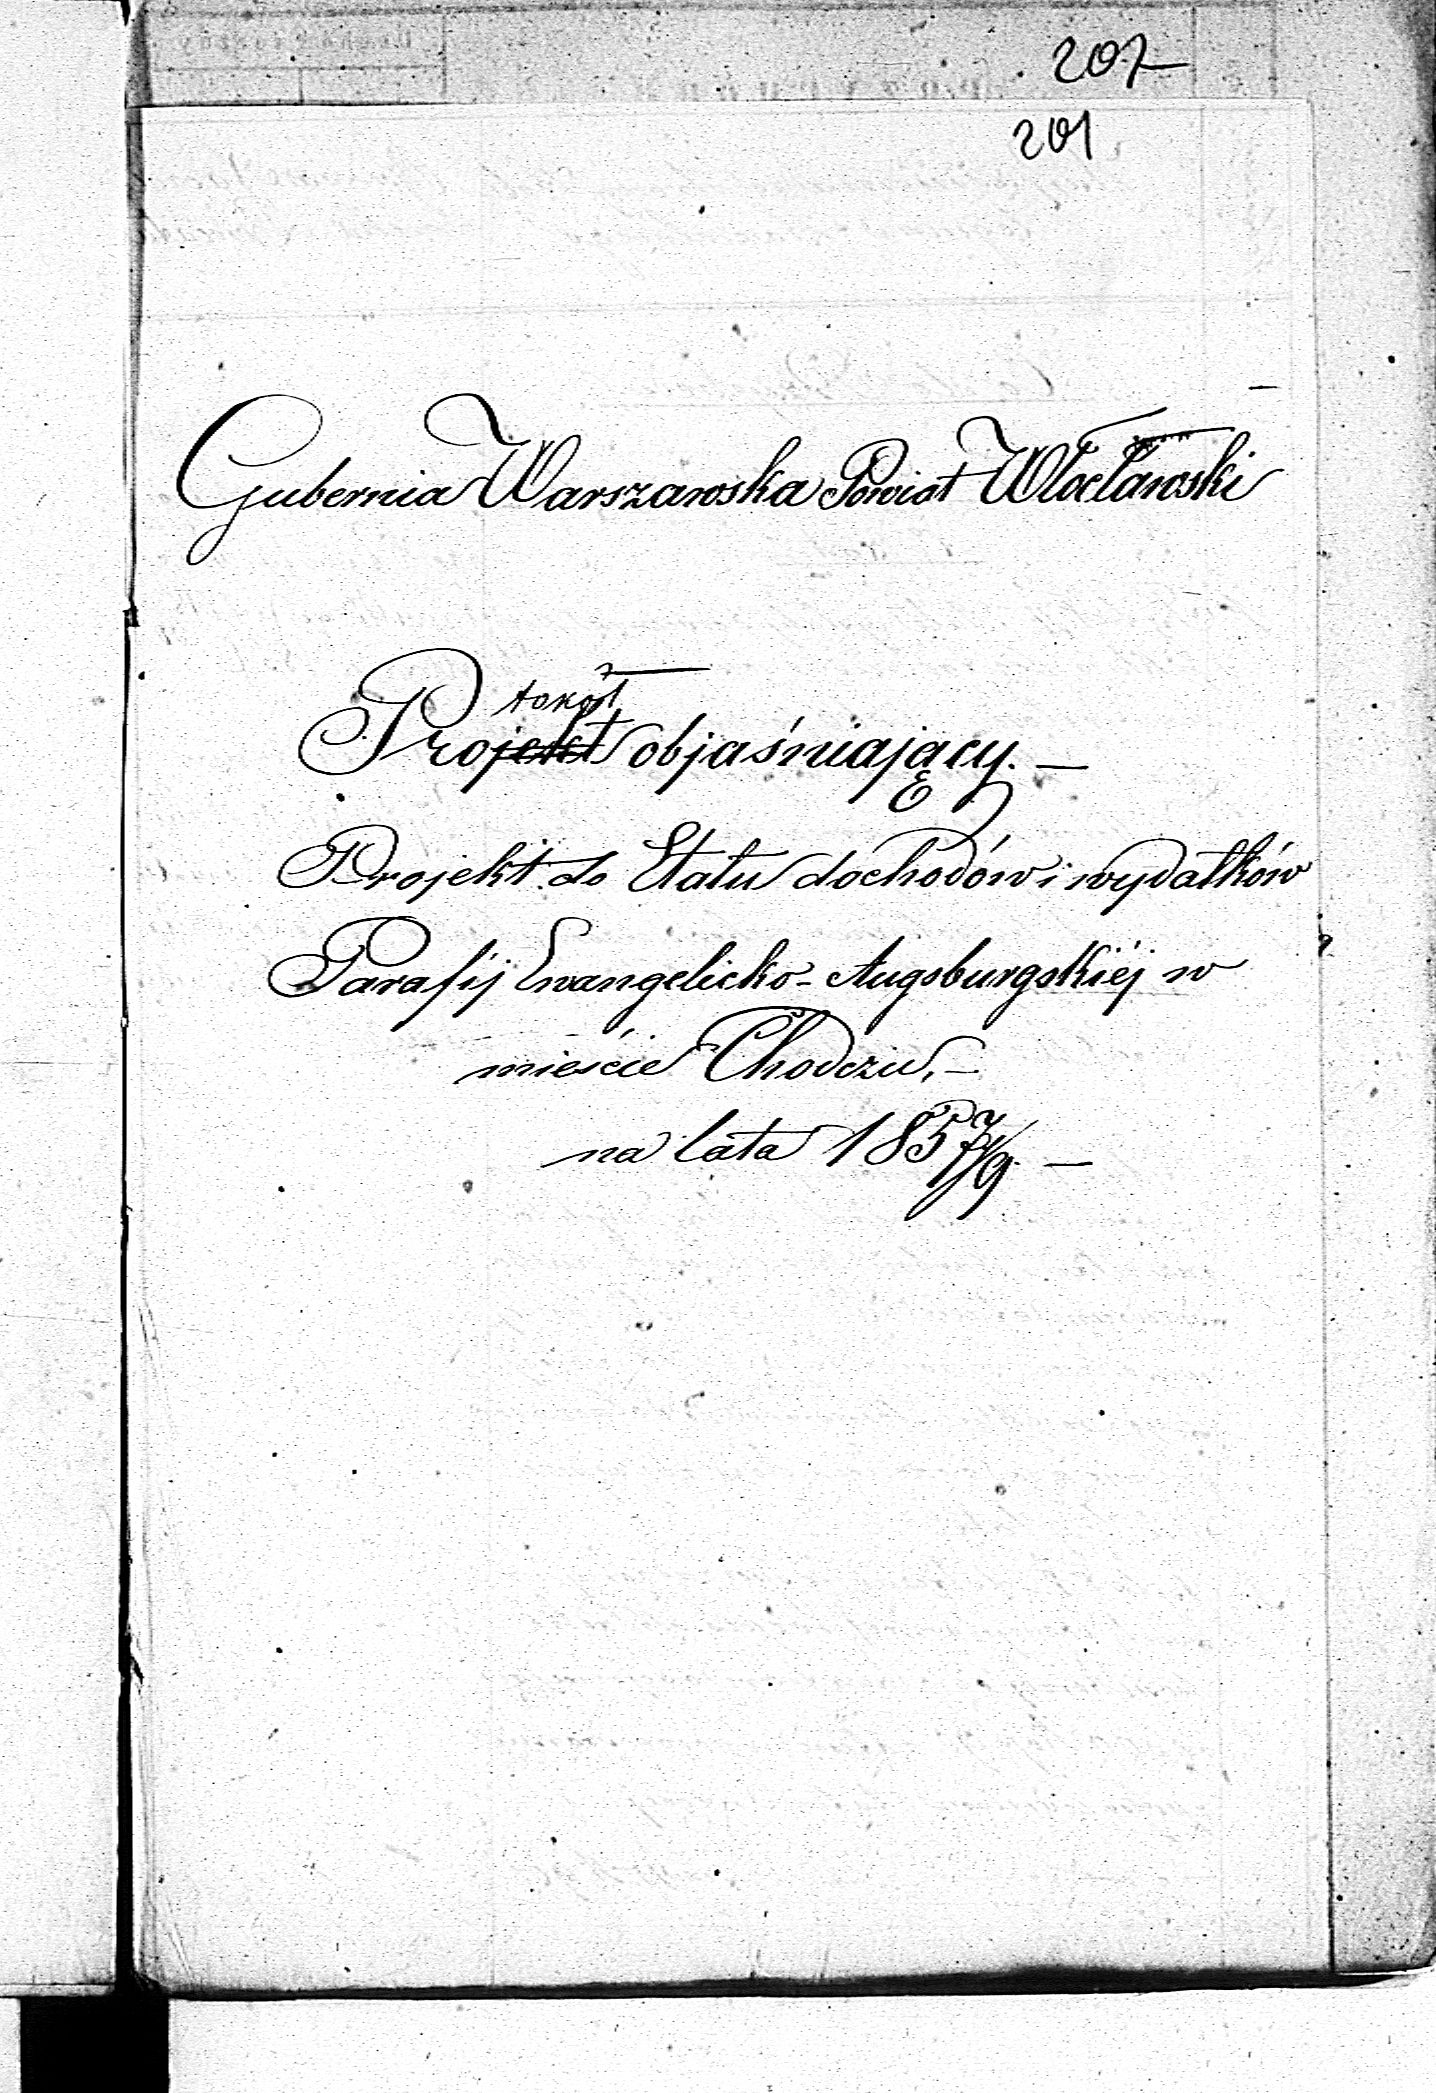 207
201
Gubernia Warszawska Powiat Włocławski
tokół
Projekt objaśniający. —
Projekt do Etatu dochodów i wydatków
Parafij Ewangelicko-Augsburgskiéj w
mieście Chodczu, —
na lata 1857/9. —